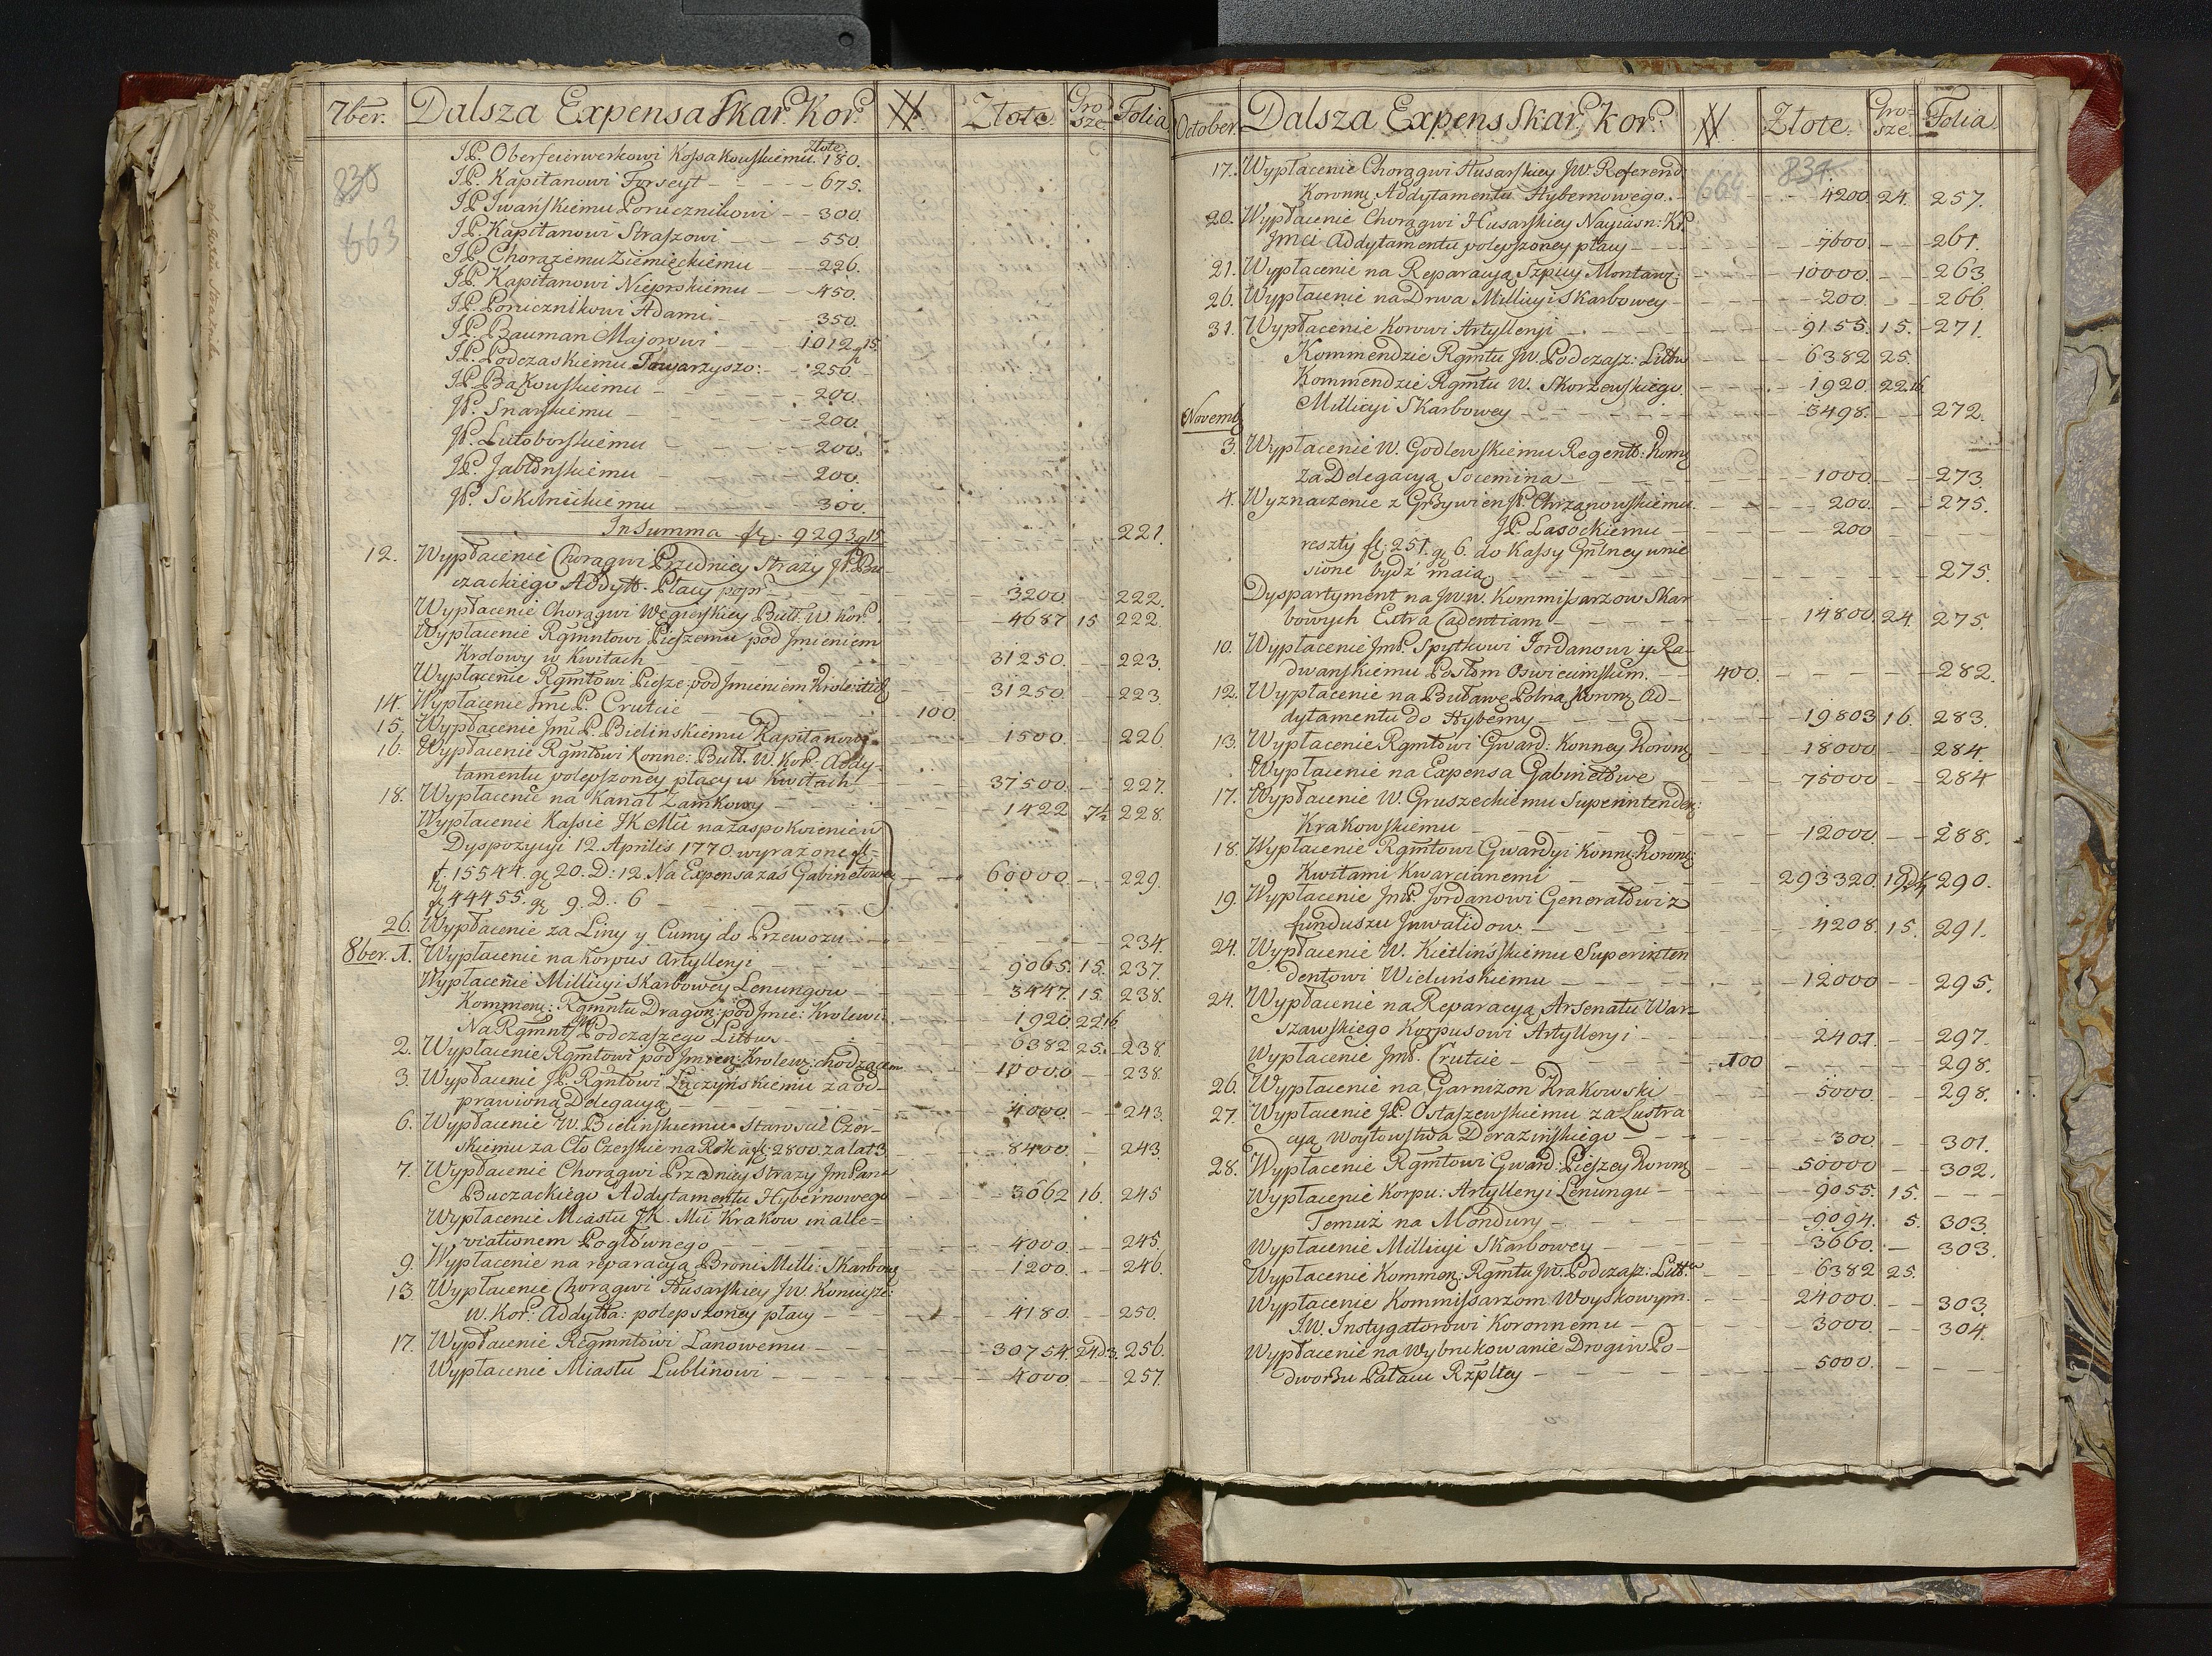 7ber. Dalsza Expensa Skar. Kor. # Złote. Gro sze. Folia
830
663
złote.
JP. Oberfeierwerkowi Kossakowskiemu. 180.
JP. Kapitanowi Forseyt - 675.
JP Iwańskiemu Porucznikowi - 300.
JP. Kapitanowi Straszowi - 550.
JP. Chorążemu Ziemięckiemu - 226.
JP. Kapitanowi Nieprskiemu - 450.
JP. Porucznikowi Adami - 350.
JP. Bauman Majorowi - 1012 g 15.
JP. Podczaskiemu Towarzyszo: - 250.
JP. Bąkowskiemu - 200.
JP. Snarskiemu - 200.
JP. Lutoborskiemu - 200.
JP. Jabłońskiemu - 200.
JP. Sokolnickiemu - 300.
In Summa fl. 9293 g 15 221.
12. Wypłacenie Chorągwi Przedniey Strazy JP. Bu
czackiego Addytt. Płacy popr - 3200 222.
Wypłacenie Chorągwi Węgierskiey Buł. W. Kor. 4687 15 222.
Wypłacenie Rgmntowi Pieszemu pod Jmieniem
Krolowy w Kwitach - 31250. 223.
Wypłacenie Rgmtowi Piesze: pod Jmieniem Krolewicz 31250 223
14. Wypłacenie Jmć P. Crutcie - 100.
15. Wypłacenie Jmć P. Bielinskiemu Kapitanowi 1500. 226
16. Wypłacenie Rgmtowi Konne: Buł. W. Kor. Addy-
tamentu polepszoney płacy w Kwitach - 37500. 227.
18. Wypłacenie na Kanał Zamkowy - 1422 7½ 228.
Wypłacenie Kassie JK Mći na zaspokoienie w
Dyspozycyi 12. Aprilis 1770. wyrażone fl:
fl. 15544. gr 20. D: 12. Na Expensa zaś Gabinetowe 60000. 229.
fl. 44455. gr 9. D: 6
26. Wypłacenie za Liny y Cumy do Przewozu - 234.
8ber. 1. Wypłacenie na Korpus Artylleryi - 9065. 15. 237.
Wypłacenie Millicyi Skarbowey Lenungow - 3447. 15. 238.
Kommen: Rgmntu Dragon: pod Jmie: Krolewi: 1920. 22 16
Na Rgmnt JW Podczaszego Littw. - 6382 25. 238.
2. Wypłacenie Rgmtowi pod Jmien: Krolew: chodzącem 10000 238.
3. Wypłacenie JP. Rgntowi Łączyńskiemu za od-
prawioną Delegacyą - 4000. 243.
6. Wypłacenie W. Bielinskiemu Staroscie Czer-
skiemu za Cło Czerskie na Rok à fl. 2800. za lat 3. 8400. 243.
7. Wypłacenie Chorągwi Przedniey Strazy Jm Pana
Buczackiego Addytamentu Hybernowego 3662 16. 245
Wypłacenie Miastu JK. Mći Krakow in alle-
viationem Pogłownego - 4000. 245.
9. Wypłacenie na reparacyą Broni Milli: Skarbowy 1200. 246.
13. Wypłacenie Chorągwi Husarskiey JW. Koniusze:
W. Kor: Addytta: polepszoney płacy - 4180. 250.
17. Wypłacenie Regmntowi Lanowemu - 30754. 24 d 3. 256.
Wypłacenie Miastu Lublinowi - 4000. 257.
October. Dalsza Expens Skar. Kor. # Złote. Gro- sze. Folia.
664 834
17. Wypłacenie Chorągwi Husarskiey JW. Referend:
Koronny Addytamentu Hybernowego. - 4200 24. 257.
20. Wypłacenie Chorągwi Husarskiey Nayiasn: Kr.
Jmci Addytamentu polepszoney płacy - 7600. 261.
21. Wypłacenie na Reparacyą Szpicy Montaw: 10000. 263
26. Wypłacenie na Drwa Millicyi Skarbowey - 200. 266.
31. Wypłacenie Korowi Artylleryi - 9155. 15. 271.
Kommendzie Rgmtu JW. Podczasz: Littw 6382 25.
Kommendzie Rgmtu W. Skorzewskiego. - 1920. 22 16
Millicyi Skarbowey - 3498. 272.
Novemb.
3. Wypłacenie W. Godlewskiemu Regentt: Komy
za Delegacyą Socemina - 1000. 273.
4. Wyznaczenie z Grzywien JP. Chrzanowskiemu. 200. 275.
JP. Lasockiemu - 200
reszty fl: 251. gr 6. do Kassy Gnlney wnie
sione bydź maią - 275.
Dyspartyment na JWW. Kommissarzow Skar
bowych Extra Cadentiam - 14800. 24. 275.
10. Wypłacenie JmP. Spytkowi Jordanowi y Ra-
dwanskiemu Posłom Oswiecimskim. - 400. 282.
12. Wypłacenie na Buławę Polną Korony Ad-
dytamentu do Hyberny - 19803 16. 283.
13. Wypłacenie Rgmtowi Gward: Konney Koronny 18000. 284.
Wypłacenie na Expensa Gabinetowe 75000 284
17. Wypłacenie W. Gruszeckiemu Superintenden:
Krakowskiemu - 12000. 288.
18. Wypłacenie Rgmtowi Gwardyi Konny Koronny
Kwitami Kwarcianemi - 293320. 19 290.
19. Wypłacenie JmP. Jordanowi Generałowi z
funduszu Jnwalidow. - 4208. 15. 291.
24. Wypłacenie W. Kietlińskiemu Superinten
dentowi Wieluńskiemu - 12000 295.
24. Wypłacenie na Reparacyą Arsenału War-
szawskiego Korpusowi Artylleryi - 2401. 297.
Wypłacenie JmP. Crutcie - 100 298.
26. Wypłacenie na Garnizon Krakowski - 5000. 298.
27. Wypłacenie JP. Ostaszewskiemu za Lustra
cyą Woytowstwa Derazińskiego - 300. 301.
28. Wypłacenie Rgmtowi Gward: Pieszey Koronny 50000 302.
Wypłacenie Korpu: Artylleryi Lenungu - 9055. 15.
Temuż na Mondury - 9094. 5. 303
Wypłacenie Millicyi Skarbowey - 3660. 303.
Wypłacenie Kommen: Rgmtu JW. Podczasz: Litt. 6382 25.
Wypłacenie Kommissarzom Woyskowym. 24000. 303.
J.W. Instygatorowi Koronnemu - 3000. 304.
Wypłacenie na Wybrukowanie Drogi w Po-
dworzu Pałacu Rzpltey - 5000.